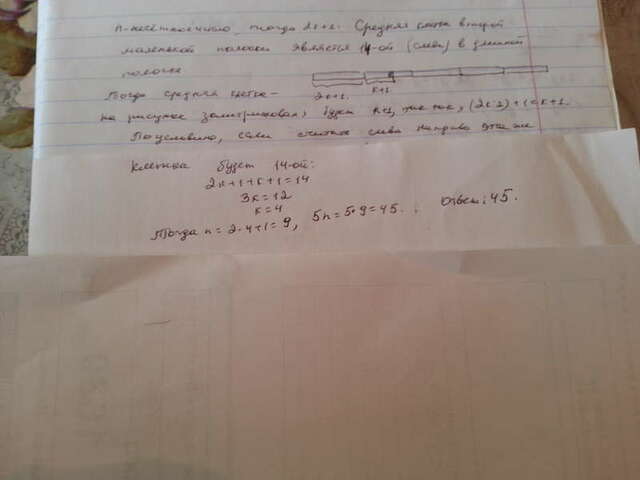 n-нечётное число, тогда 2k+1. Средняя клетка второй
маленькой полоски является 14-ой (слева) в длинной
полоске
Тогда средняя клетка-
2k+1. k+1
на рисунке заштрихована, будет k+1, так как, (2k+1)+(k+1
По условию, если считать слева направо эта же
клетка будет 14-ой:
2k+1+k+1=14
3k=12
k=4
Тогда n=2·4+1=9, 5n=5·9=45. Ответ: 45.